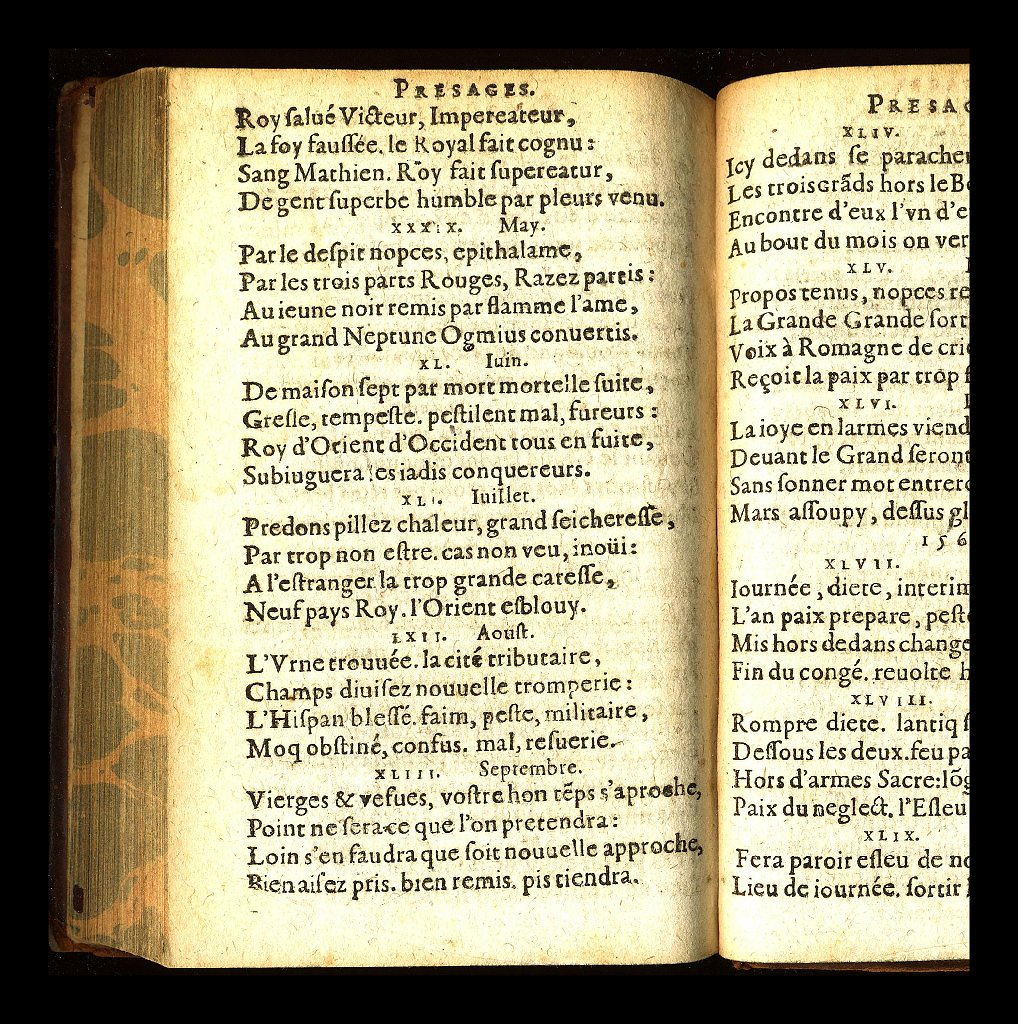 PRESAGES.
Roy ſalué Victeur, Impereateur,
La foy fauſſée. le Royal fait cognu:
Sang Mathien. Roy fait ſupereatur,
De gent ſuperbe humble par pleurs venu.
XXXIX. May.
Par le deſpit nopces, epithalame,
Par les trois parts Rouges, Razez partis:
Au ieune noir remis par flamme l'ame,
Au grand Neptune Ogmius conuertis.
XL. Iuin.
De maiſon ſept par mort mortelle ſuite,
Greſle, tempeſte. peſtilent mal, fureurs:
Roy d'Orient d'Occident tous en fuite,
Subiuguera ſes iadis conquereurs.
XLI. Iuillet.
Predons pillez chaleur, grand ſeichereſſe,
Par trop non eſtre. cas non veu, inoüi:
A l'eſtranger la trop grande careſſe,
Neuf pays Roy. l'Orient eſblouy.
LXII. Aouſt.
L'Vrne trouuée. la cité tributaire,
Champs diuiſez nouuelle tromperie:
L'Hiſpan bleſſé. faim, peſte, militaire,
Moq obſtiné, confus. mal, reſuerie.
XLIII. Septembre.
Vierges & vefues, voſtre bon tẽps s'aproche,
Point ne ſera ce que l'on pretendra:
Loin s'en faudra que ſoit nouuelle approche,
Bien aiſez pris. bien remis. pis tiendra.
PRESAG
XLIV.
Icy dedans ſe parache
Les trois Grãds hors le B
Encontre d'eux l'vn d'e
Au bout du mois on ver
XLV.
Propos tenus, nopces re
La Grande Grande ſort
Voix à Romagne de cri
Reçoit la paix par trop f
XLVI.
La ioye en larmes viend
Deuant le Grand ſeront
Sans ſonner mot entrer
Mars aſſoupy, deſſus gl
156
XLVII.
Iournée, diete, interim
L'an paix prepare, peſte
Mis hors dedans change
Fin du congé. reuolte h
XLVIII.
Rompre diete. lantiq ſ
Deſſous les deux. feu pa
Hors d'armes Sacre: lõg
Paix du neglect. l'Eſleu
XLIX.
Fera paroir eſleu de no
Lieu de iournée. ſortir